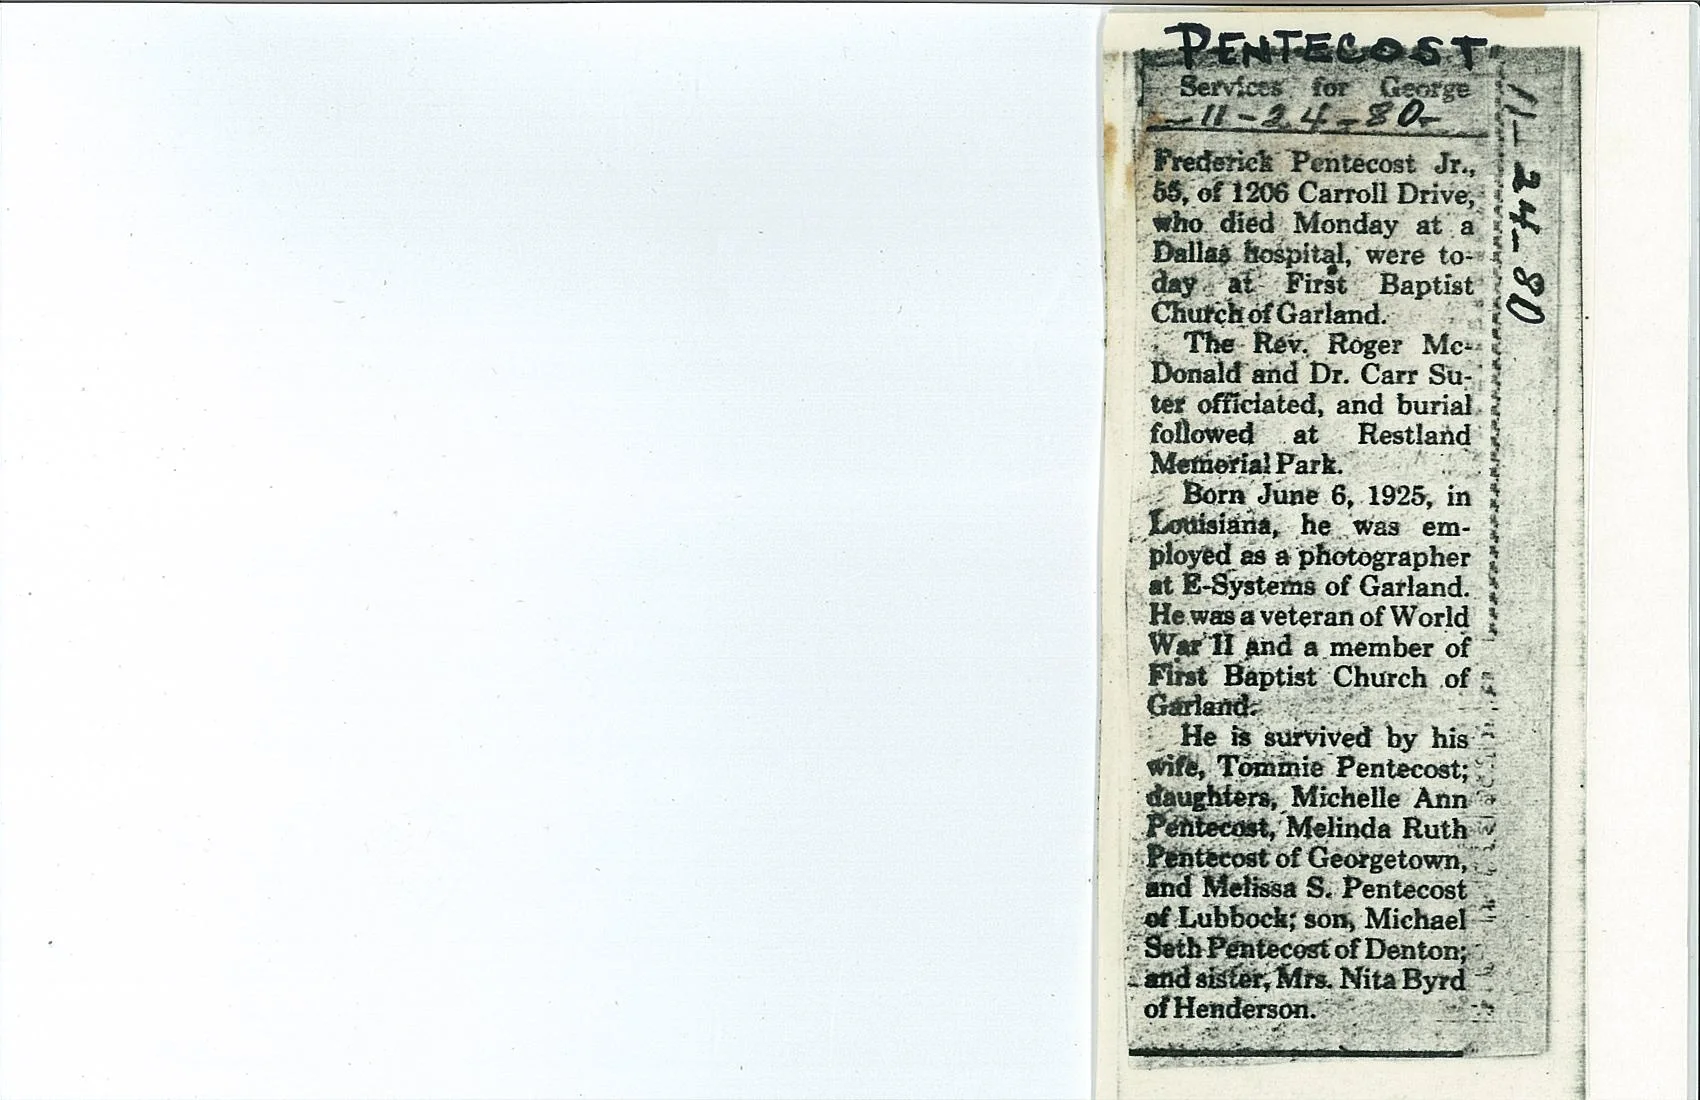 PENTECOST
Services for George
-11-24-80-
Frederick Pentecost Jr.,
55, of 1206 Carroll Drive,
who died Monday at a
Dallas hospital, were to-
day at First Baptist
Church of Garland.
The Rev. Roger Mc-
Donald and Dr. Carr Su-
ter officiated, and burial
followed at Restland
Memorial Park.
Born June 6, 1925, in
Louisiana, he was em-
ployed as a photographer
at E-Systems of Garland.
He was a veteran of World
War II and a member of
First Baptist Church of
Garland.
He is survived by his
wife, Tommie Pentecost;
daughters, Michelle Ann
Pentecost, Melinda Ruth
Pentecost of Georgetown,
and Melissa S. Pentecost
of Lubbock; son, Michael
Seth Pentecost of Denton;
and sister, Mrs. Nita Byrd
of Henderson.
11-24-80